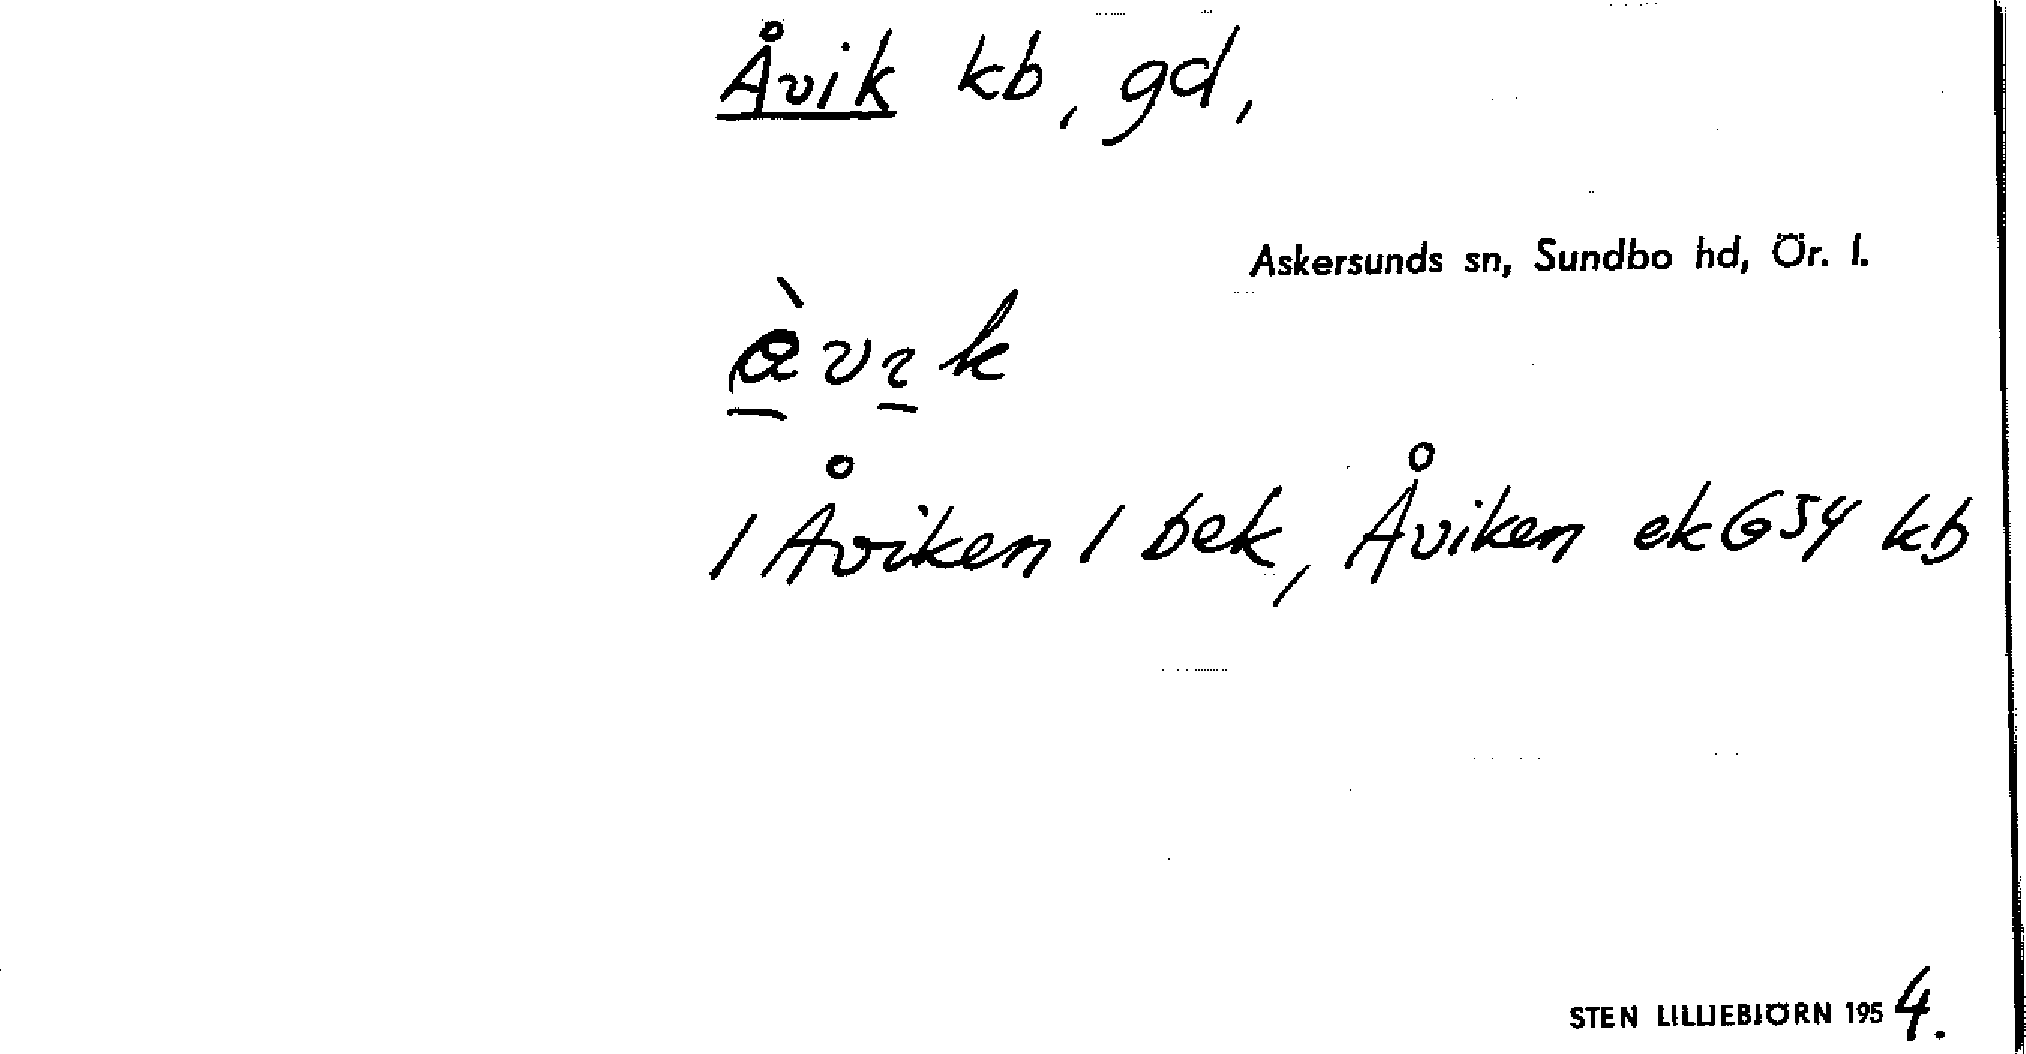 Åvik kb, gd,
Askersunds sn, Sundbo hd, Ör. l.
/Åviken/ bek, Åviken ek G54 kb
STEN LILLIEBJÖRN 1954.